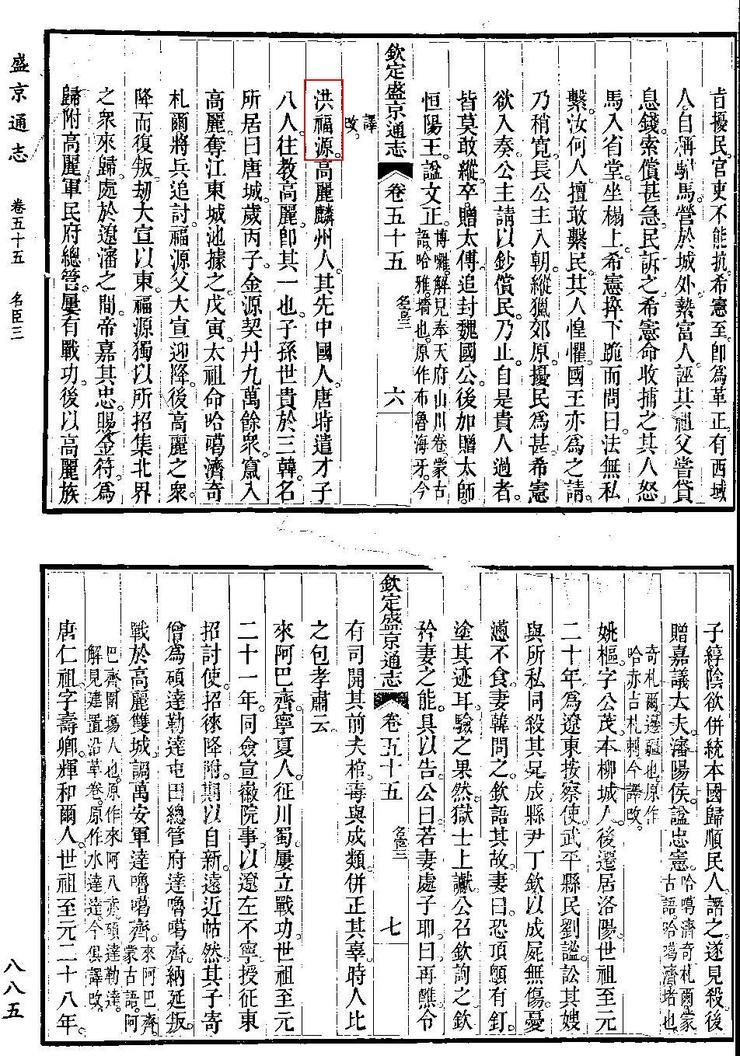 擾民官吏不能抗希憲至卽為革正有西域
人自稱駙馬營於城外繫富人誣其祖父嘗貸
息錢索償甚急民訴之希憲命收捕之其人怒
馬入省堂坐榻上希憲捽下跪而問曰法無私
繫汝何人擅敢繫民其人惶懼國王亦為之請
乃稍寛長公主入朝縱獵郊原擾民為甚希憲
欲入奏公主請以鈔償民乃止自是貴人過者
皆莫敢縱卒贈太傅追封魏國公後加贈太師
恒陽王諡文正
博囉解見奉天府山川卷蒙古
語哈雅墻也原作布魯海牙今
欽定盛京通志 卷五十五 名臣三 六
譯
改
洪福源高麗麟州人其先中國人唐時遣才子
八人往教高麗卽其一也子孫世貴於三韓名
所居曰唐城歲丙子金源契丹九萬餘衆竄入
高麗奪江東城池據之戊寅太祖命哈噶濟奇
札爾將兵追討福源父大宣迎降後高麗之衆
降而復叛刼大宣以東福源獨以所招集北界
之衆來歸處於遼瀋之間帝嘉其忠賜金符為
歸附高麗軍民府總管屢有戰功後以高麗族
子綧陰欲併統本國歸順民人譖之遂見殺後
贈嘉議大夫瀋陽侯諡忠憲
哈噶濟奇札爾蒙
古語哈噶濟堵也
奇札爾邊疆也原作
哈赤吉札剌今譯改
姚樞字公茂本柳城人後遷居洛陽世祖至元
二十年為遼東按察使武平縣民劉諡訟其嫂
與所私同殺其兄成縣尹丁欽以成屍無傷憂
懣不食妻韓問之欽語其故妻曰恐頂顖有釘
塗其迹耳驗之果然獄士上讞公召欽詢之欽
矜妻之能具以告公曰若妻處子耶曰再醮令
有司開其前夫棺毒與成類併正其辜時人比
之包孝肅云
欽定盛京通志 卷五十五 名臣三 七
來阿巴齊寧夏人征川蜀屢立戰功世祖至元
二十一年同僉宣徽院事以遼左不寧授征東
招討使招徠降附期以自新遠近帖然其子寄
僧為碩達勒達屯田總管府達嚕噶齊納延叛
戰於高麗雙城調萬安軍達嚕噶齊
來阿巴齊
蒙古語阿
巴齊圍塲人也原作來阿八赤碩達勒達
解見建置沿革卷原作水達達今俱譯改
唐仁祖字壽卿輝和爾人世祖至元二十八年
盛京通志 卷五十五 名臣三
八八五